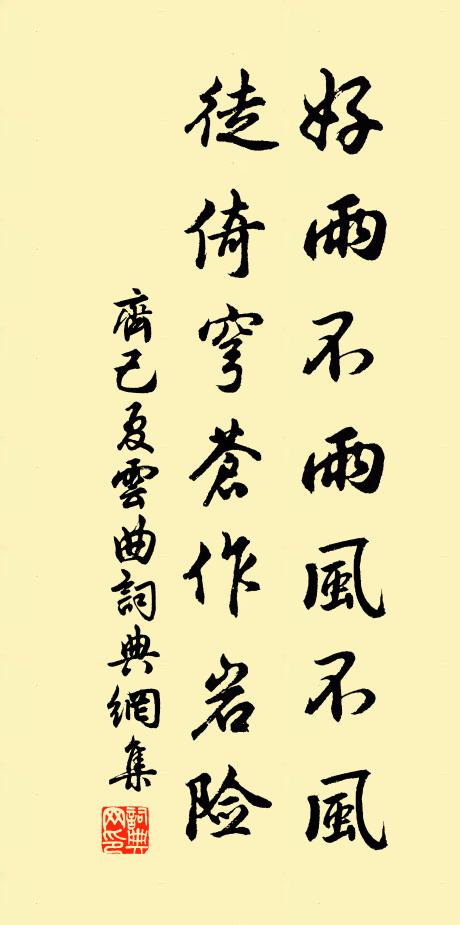 好雨不雨風不風
徒倚穹蒼作岩险
齊己夏雲曲詞典網集
詞典网印